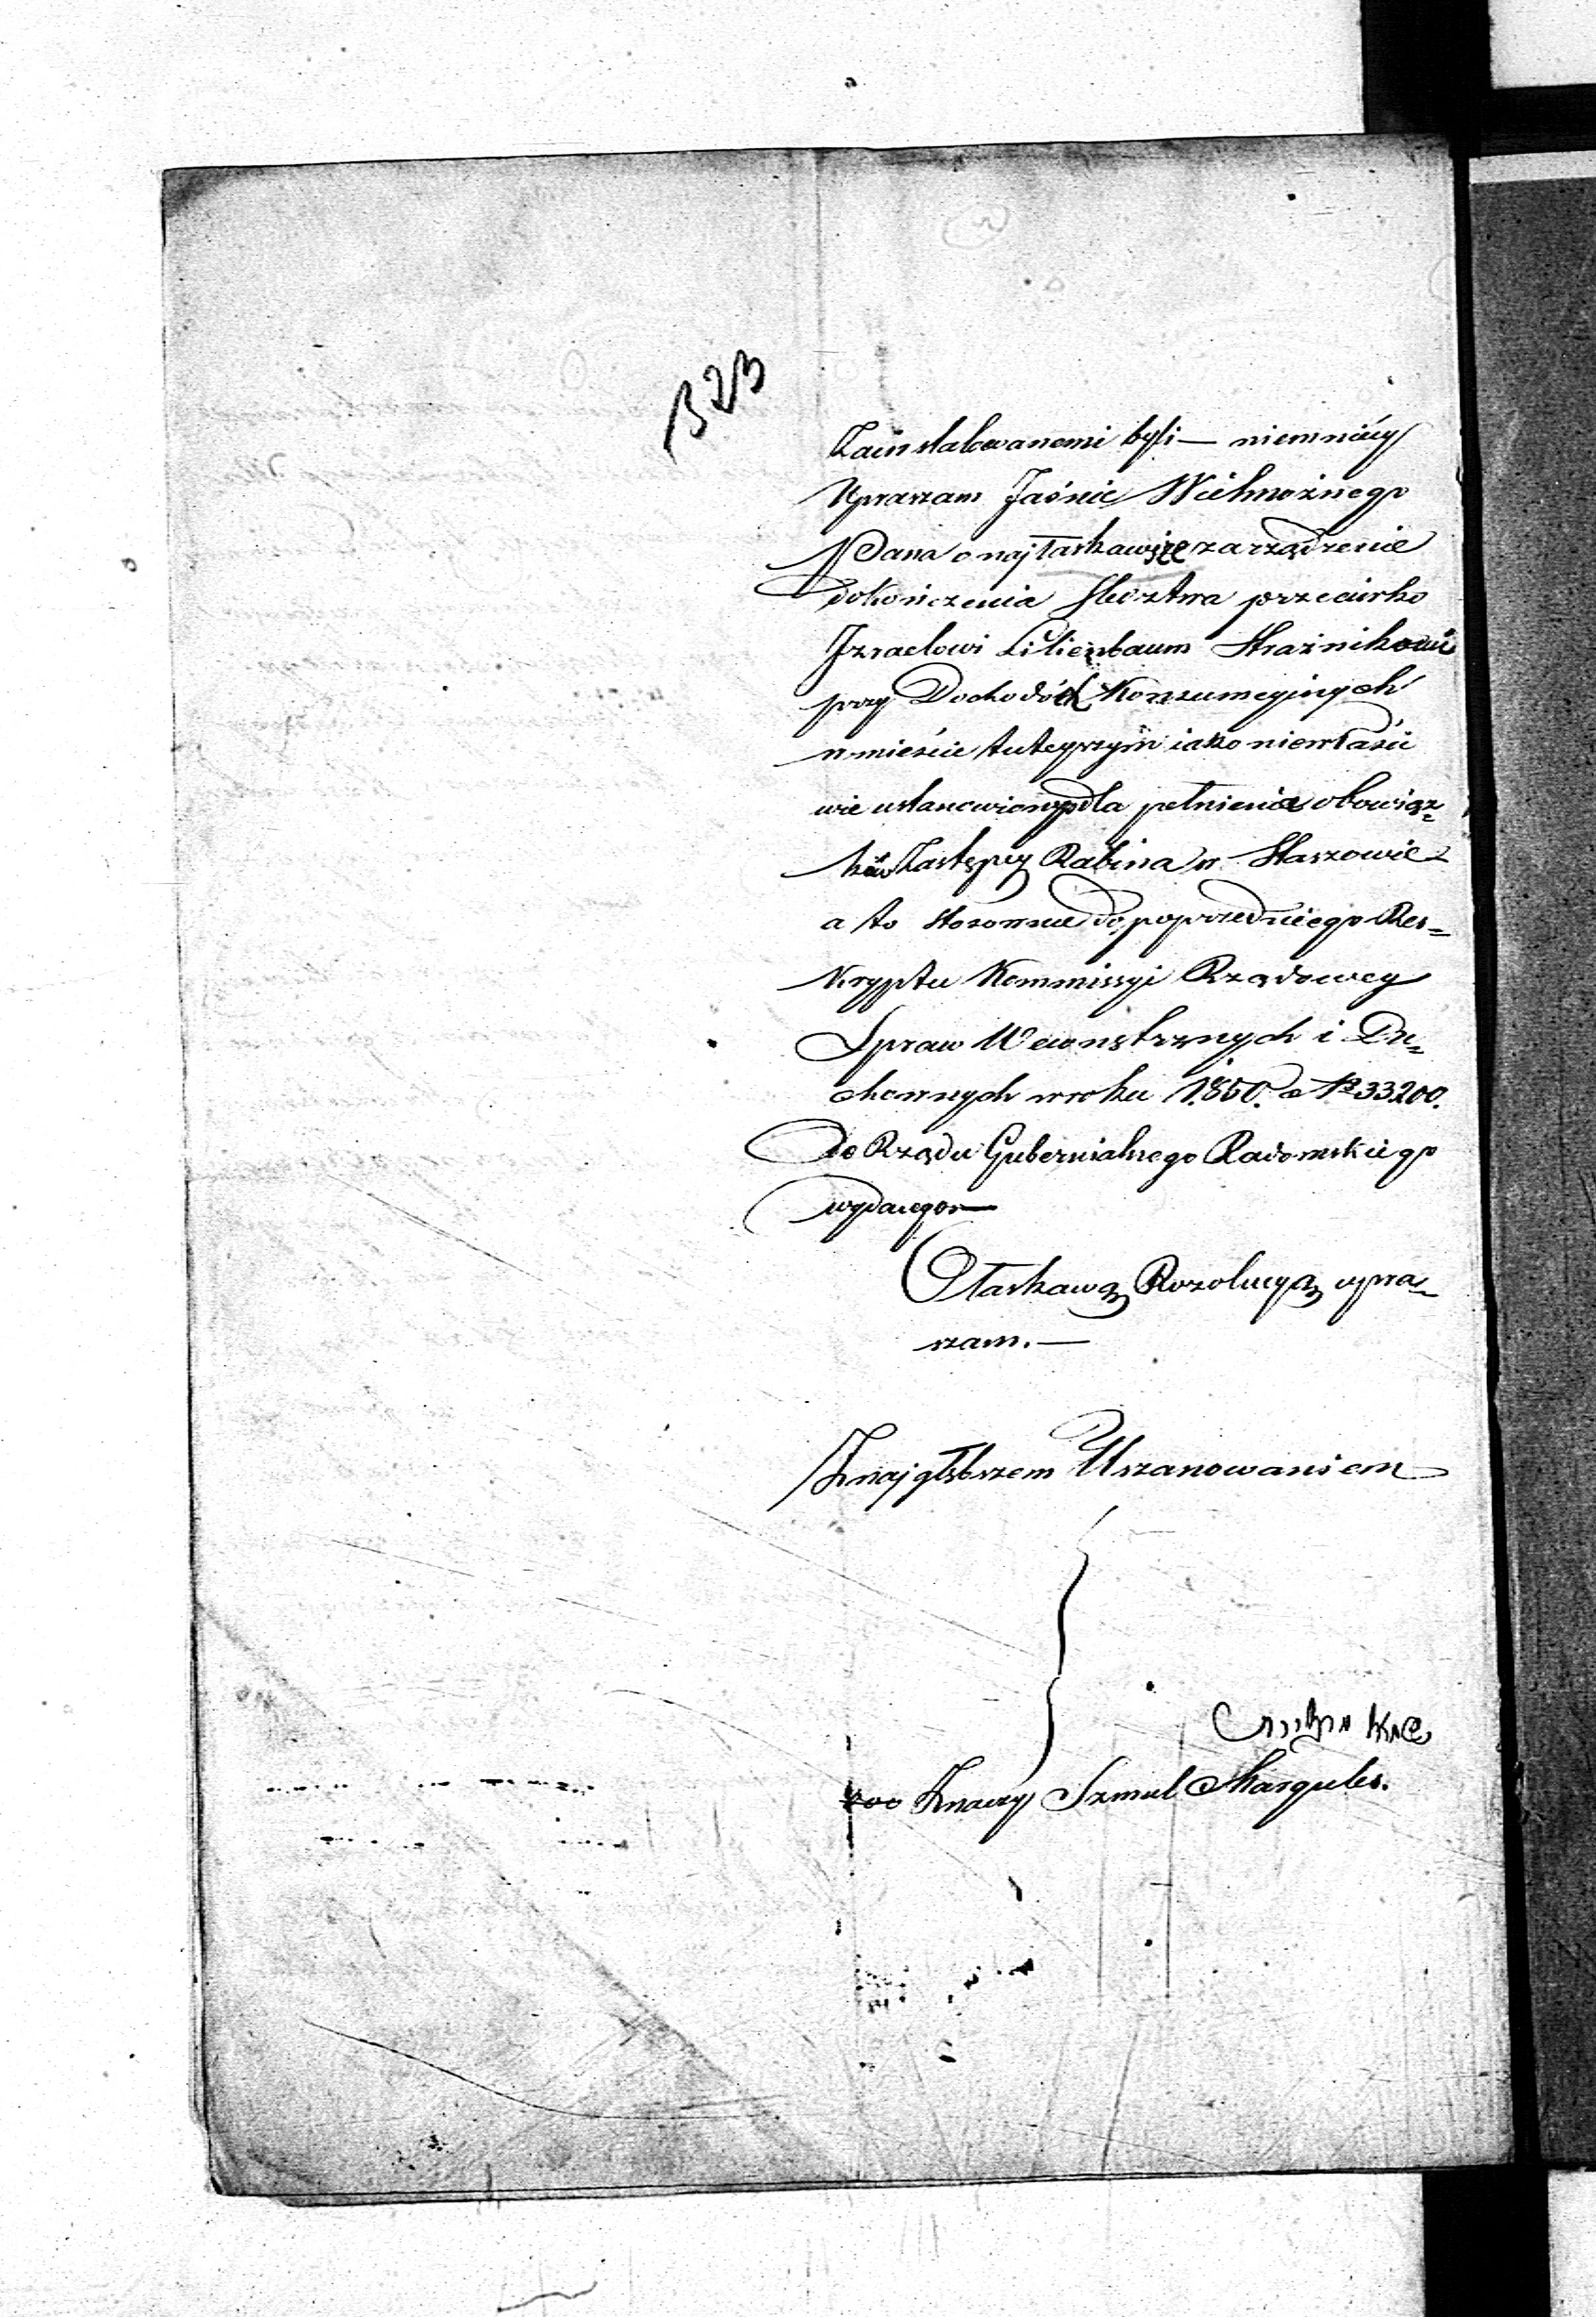 323
Zainstalowanemi byli — niemniéy
Upraszam Jaśnie Wielmożnego
Pana o najłaskawsze zarządzenie
dokończenia Sledztwa przeciwko
Izraelowi Lilienbaum Strażnikowi
przy Dochodach Konsumcyjnych
w mieście tuteyszym iako niewłaści
wie ustanowiony dla pełnienia obowiąz=
ków Zastępcy Rabina w Staszowie
a to stosownie do poprzedniego Res=
kryptu Kommissyi Rządowey
Spraw Wewnętrznych i Du=
chownych w roku 1850. a No 33200.
do Rządu Gubernialnego Radomskiego
wydanego —
O łaskawą Rezolucyą upra=
szam. —
Z najgłębszem Uszanowaniem
Znaczy Szmul Margules.